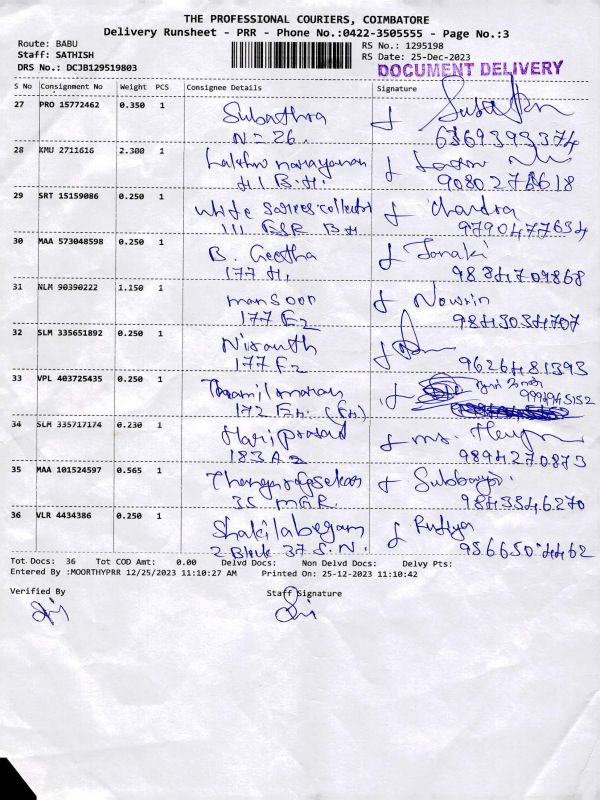 THE PROFESSIONAL COURIERS, COIMBATORE
Delivery Runsheet - PRR - Phone No.:0422-3505555 - Page No.:3
Route: BABU
RS No.: 1295198
Staff: SATHISH
RS Date: 25-Dec-2023
DRS No.: DCJB129519803
DOCUMENT DELIVERY
S No Consignment No Weight PCS Consignee Details Signature
27 PRO 15772462 0.350 1 Subathra
N - 26. 6369393374
28 KMU 2711616 2.300 1 Lakshmi narayanan
H1 B.H.
29 SRT 15159086 0.250 1 White sarees collector Chandra
111 ESR BH 9790477634
30 MAA 573048598 0.250 1 B. Geetha Janaki
177 H. 9884709868
31 NLM 90390222 1.150 1 mansoor Nowrin
177 F2 9843034707
32 SLM 335651892 0.250 1 Nisanth
177 F2 9626481393
33 VPL 403725435 0.250 1 Thamilmaran
172
34 SLM 335717174 0.230 1 Hariprasad ms.
183 A2 9894270873
35 MAA 101524597 0.565 1 Thangarajsekar
35 MGR. 9843346270
36 VLR 4434386 0.250 1 Shakilabegam
2 Block 37 S.N. 9566504462
Tot Docs: 36 Tot COD Amt: 0.00 Delvd Docs: Non Delvd Docs: Delvy Pts:
Entered By :MOORTHYPRR 12/25/2023 11:10:27 AM Printed On: 25-12-2023 11:10:42
Verified By Staff Signature